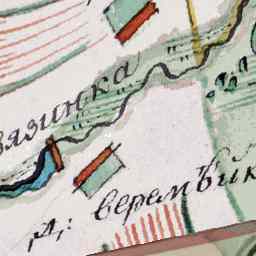 вязинка
д: верембик